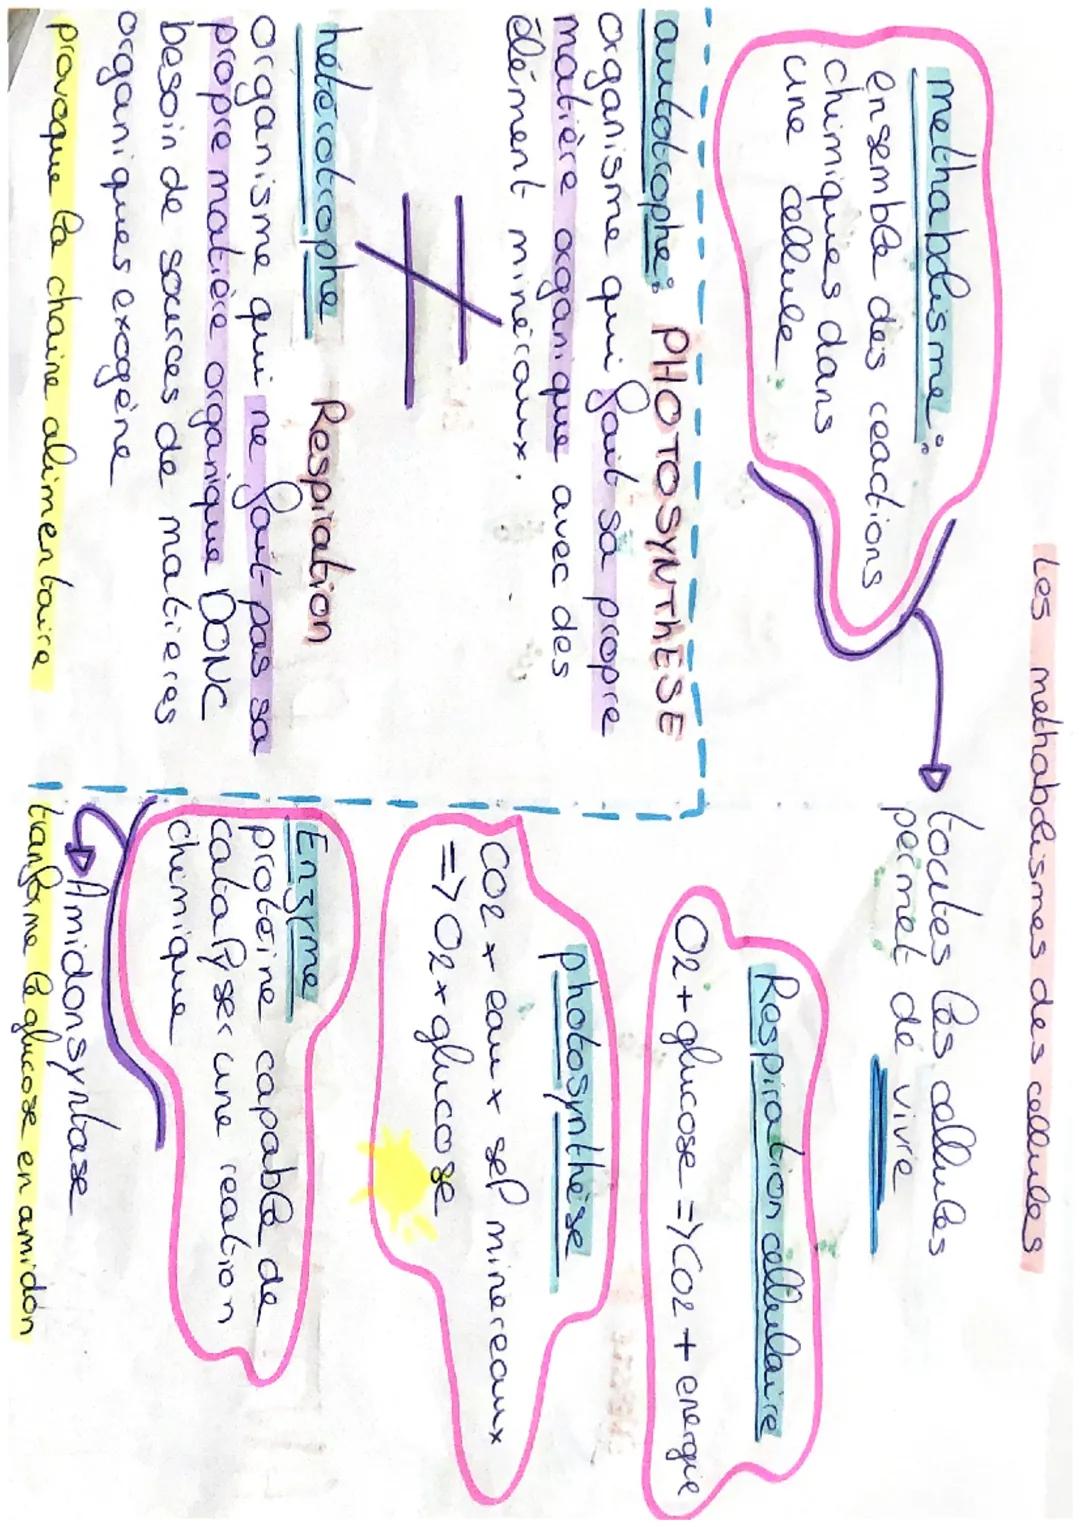 Les methabolismes des cellules
methabolisme:
ensemble des reactions
chimiques dans
une cellule
toutes les cellules
permet de vivre
autotrophe: PHOTOSYNThESE
organisme qui fait sa propre
matière organique avec des
élément minéraux.
≠
hétérotrophe Respiration
organisme qui ne fait pas sa
propre matière organique DONC
besoin de sources de matieres
organiques exogène
provoque la chaine alimentaire
Respiration cellulaire
O2 + glucose => CO2 + energie
photosynthèse
CO2 + eau + sel minereaux
=> O2 + glucose
Enzyme
proteine capable de
catalyser une reation
chemique
Amidonsyntase
tranforme le glucose en amidon